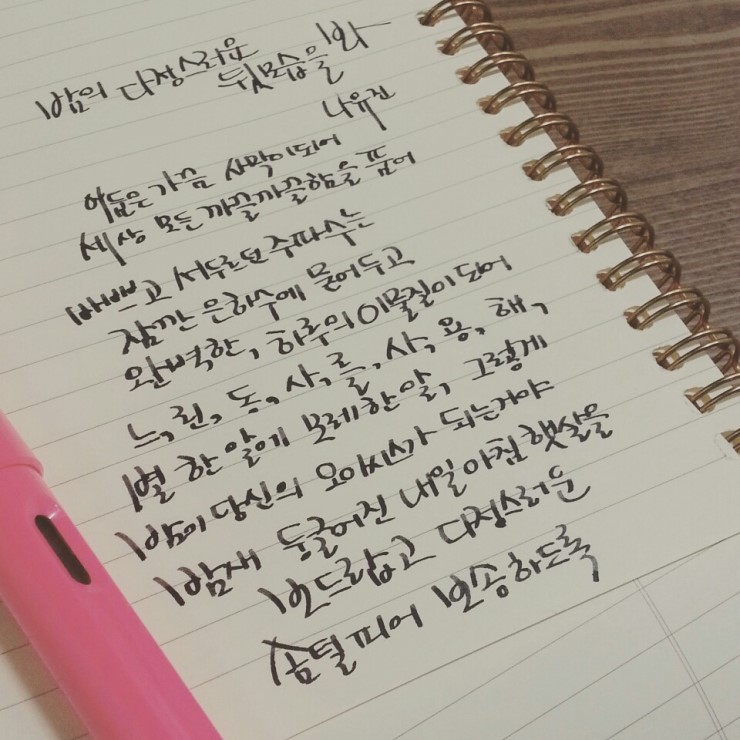 밤의 다정스러운 뒷모습을 봐
나유진
어둠은 가끔 사막이 되어
세상 모든 까끌까끌함을 품어
바쁘고 서두르던 주파수는
잠깐 은하수에 묻어두고
완벽한, 하루의 이물질이 되어
느,린, 동,사,를, 사,용,해,
별 한 알에 모레 한 알, 그렇게
밤이 당신의 오아시스가 되는거야
밤새 둥글어진 내일 아침 햇살을
보드랍고 다정스러운
솜털 피어 보송하도록